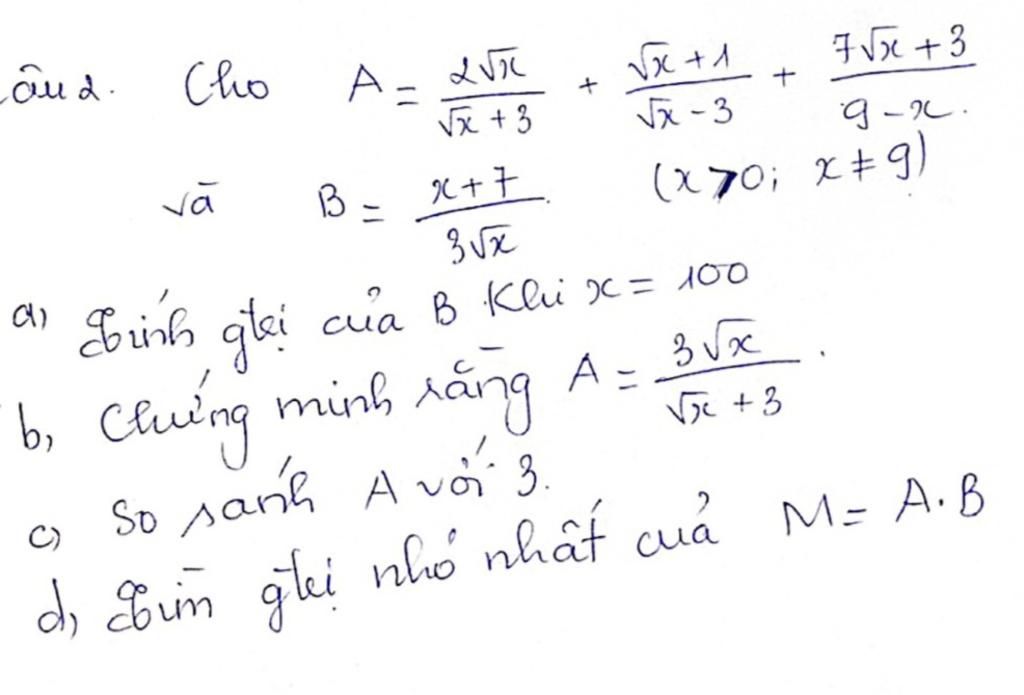 Câu 2. Cho A = \frac{2\sqrt{x}}{\sqrt{x}+3} + \frac{\sqrt{x}+1}{\sqrt{x}-3} + \frac{7\sqrt{x}+3}{9-x}.
và B = \frac{x+7}{3\sqrt{x}} (x>0; x≠9)
a, Tính gtrị của B khi x = 100
b, Chứng minh rằng A = \frac{3\sqrt{x}}{\sqrt{x}+3}.
c, So sánh A với 3.
d, Tìm gtrị nhỏ nhất của M = A.B